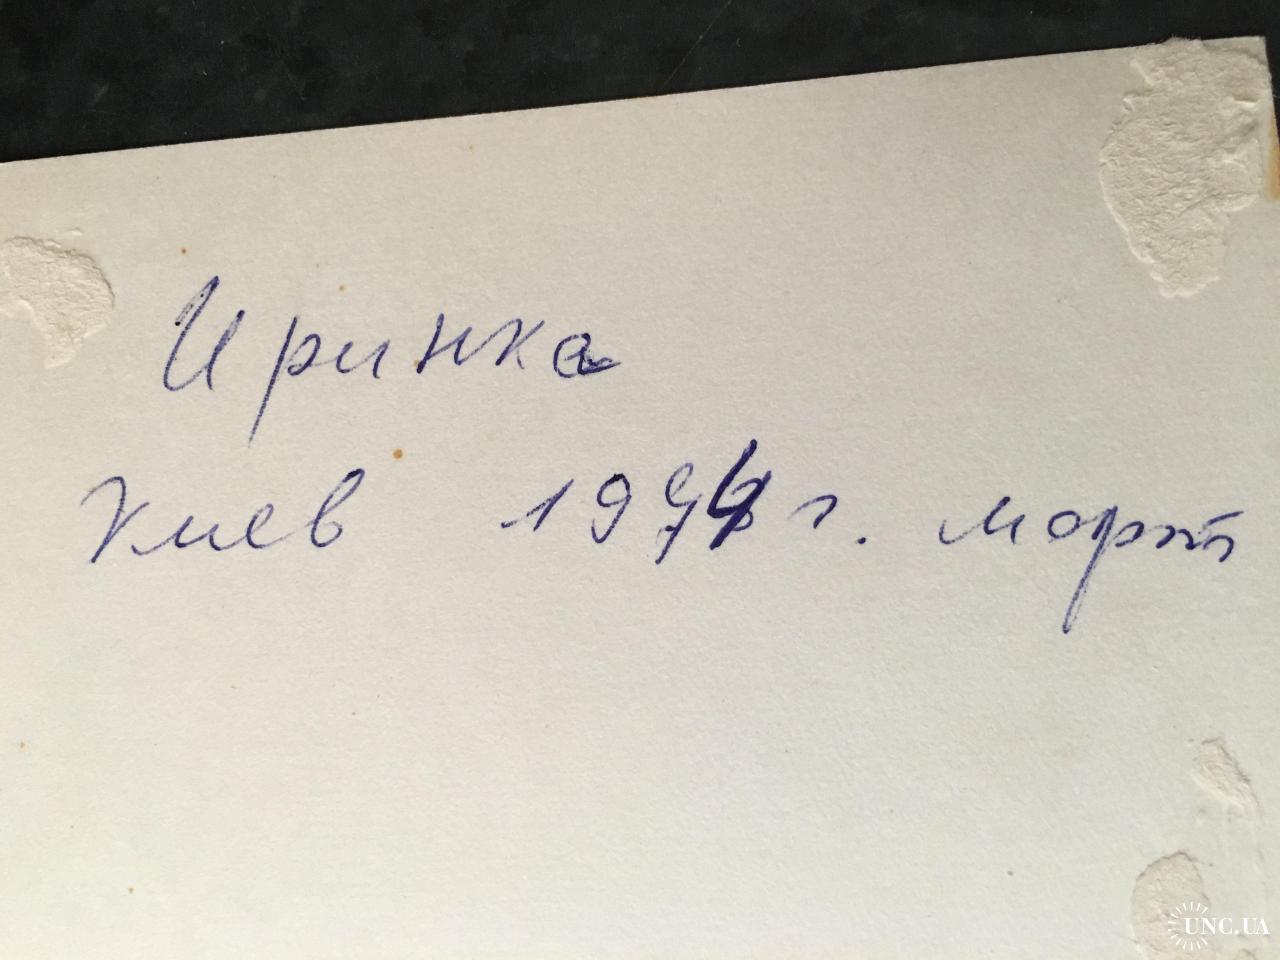 Иринка
Киев г. март
UNC.UA